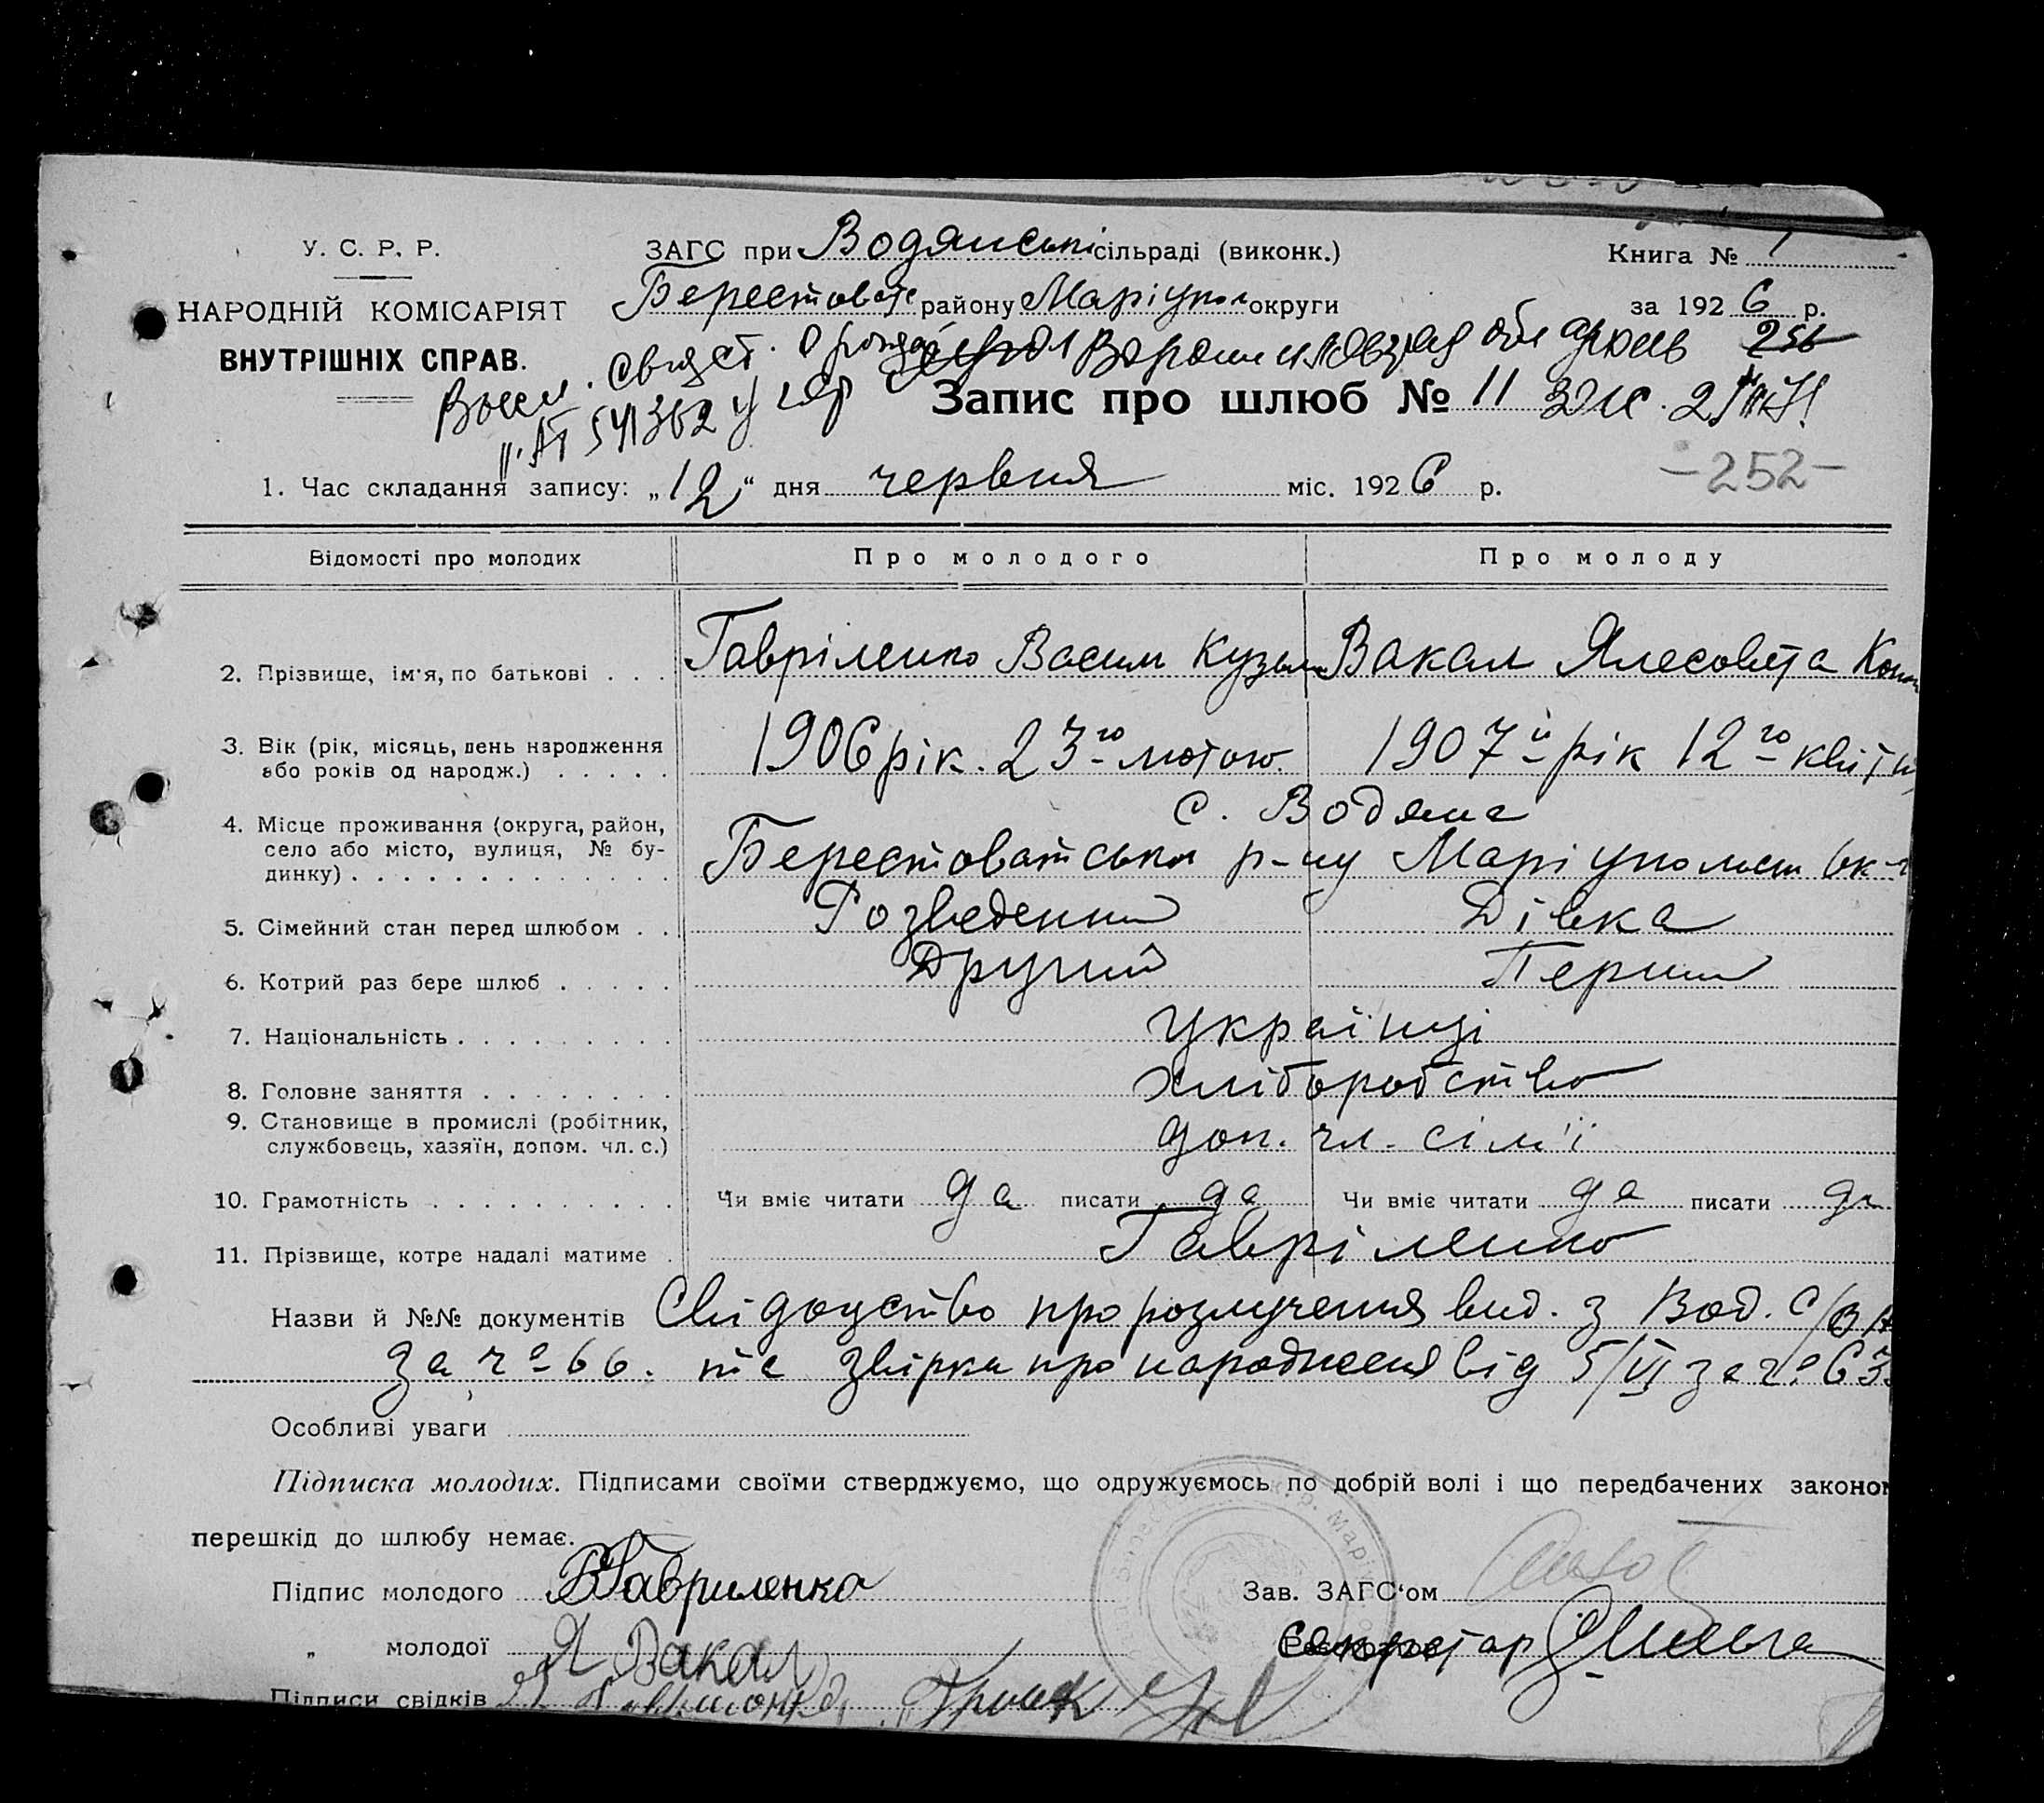 У. С. Р. Р.
НАРОДНІЙ КОМІСАРІЯТ
ВНУТРІШНІХ СПРАВ.
ЗАГС при Водянські сільраді (виконк.)
Берестоват району Маріупол округи
Книга № 1
за 1926 р.
256
Запис про шлюб № 11
1. Час складання запису: „12“ дня червня міс. 1926 р.
-252-
Відомості про молодих Про молодого Про молоду
2. Прізвище, ім'я, по батькові . . . Гавріленко Васил Кузьм Вакал Ялесовета Конс
3. Вік (рік, місяць, день народження
або років од народж.) . . . . . 1906 рік. 23го лютого. 1907й рік 12го квітн
4. Місце проживання (округа, район,
село або місто, вулиця, № бу-
динку) . . . . . . . . . . . . .
с. Водяне
Берестоватськ р-ну Маріуполськ ок-г
5. Сімейний стан перед шлюбом . . Розведенний Дівка
6. Котрий раз бере шлюб . . . . . Другий Перший
7. Національність . . . . . . . . . Українці
8. Головне заняття . . . . . . . . хліборобство
9. Становище в промислі (робітник,
службовець, хазяїн, допом. чл. с.) доп. чл. сім'ї
10. Грамотність . . . . . . . . . . Чи вміє читати да писати да Чи вміє читати да писати да
11. Прізвище, котре надалі матиме . Гавріленко
Назви й №№ документів Свідоцство про розлучення вид. з Вод. С/
за чо 66. та звірка про народження від 5/VI за чо 63.
Особливі уваги
Підписка молодих. Підписами своїми стверджуємо, що одружуємось по добрій волі і що передбачених законом
перешкід до шлюбу немає.
Підпис молодого ВГавриленко
„ молодої Я Вакал
Підписи свідків
Зав. ЗАГС'ом
Секретар